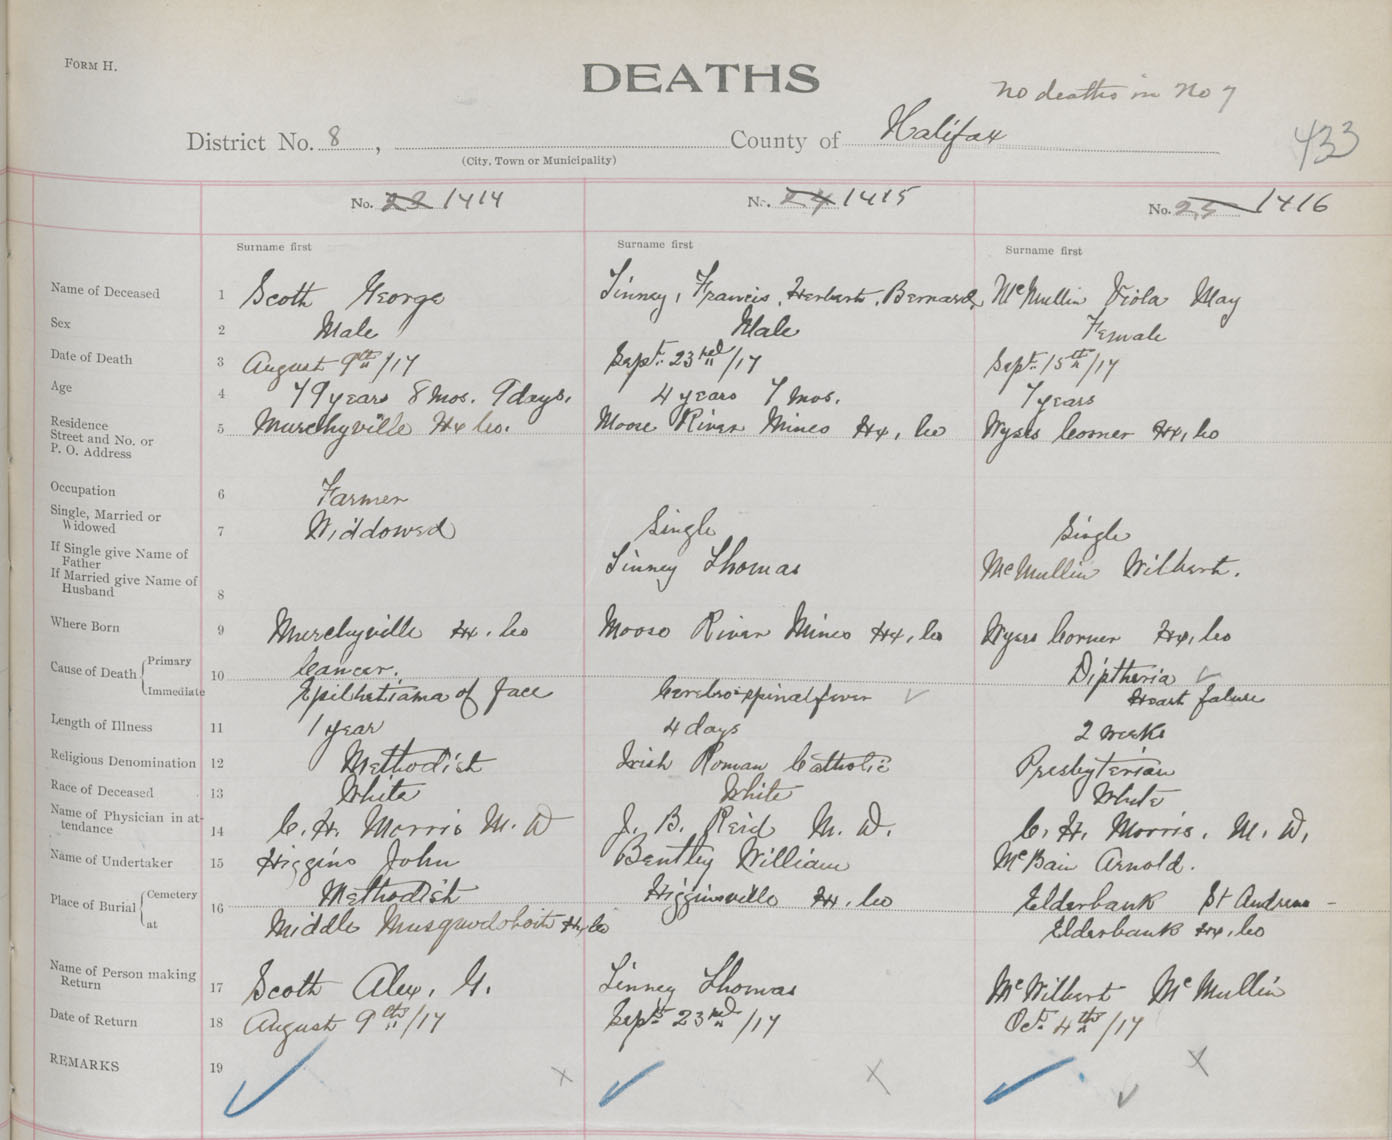 FORM H.
DEATHS
no deaths in No 7
District No. 8, County of Halifax
433
(City, Town or Municipality)
No. 23 1414 No. 24 1415 No. 25 1416
Surname first Surname first Surname first
Name of Deceased 1 Scott George Tinney, Francis, Herbert, Bernard, McMullin Viola May
Sex 2 Male Male Female
Date of Death 3 August 9th/17 Sept. 23rd/17 Sept. 15th/17
Age 4 79 years 8 mos. 9 days. 4 years 7 mos. 7 years
Residence
Street and No. or
P. O. Address 5 Murchyville Hx Co. Moose River Mines Hx, Co Wyses Corner Hx, Co
Occupation 6 Farmer
Single, Married or
Widowed 7 Widdowed Single Single
If Single give Name of
Father Tinney Thomas McMullin Wilbert.
If Married give Name of
Husband 8
Where Born 9 Murchyville Hx. Co Moose River Mines Hx, Co Wyses Corner Hx, Co
Cause of Death Primary 10 Cancer. Diptheria
Immediate Epilhetiama of face Cerebro spinal fever Heart falure
Length of Illness 11 1 year 4 days 2 weeks
Religious Denomination 12 Methodist Irish Roman Catholic Presbyterian
Race of Deceased 13 White White White
Name of Physician in at-
tendance 14 C. H. Morris M. D J. B. Reid M. D. C. H. Morris. M. D.
Name of Undertaker 15 Higgins John Bentley William McBain Arnold.
Place of Burial Cemetery 16 Methodist Higginsville Hx. Co Elderbank St Andrews -
at Middle Musquodoboit Hx, Co Elderbank Hx, Co
Name of Person making
Return 17 Scott Alex, G. Tinney Thomas McWilbert McMullin
Date of Return 18 August 9th/17 Sept. 23rd/17 Oct. 4th/17
REMARKS 19